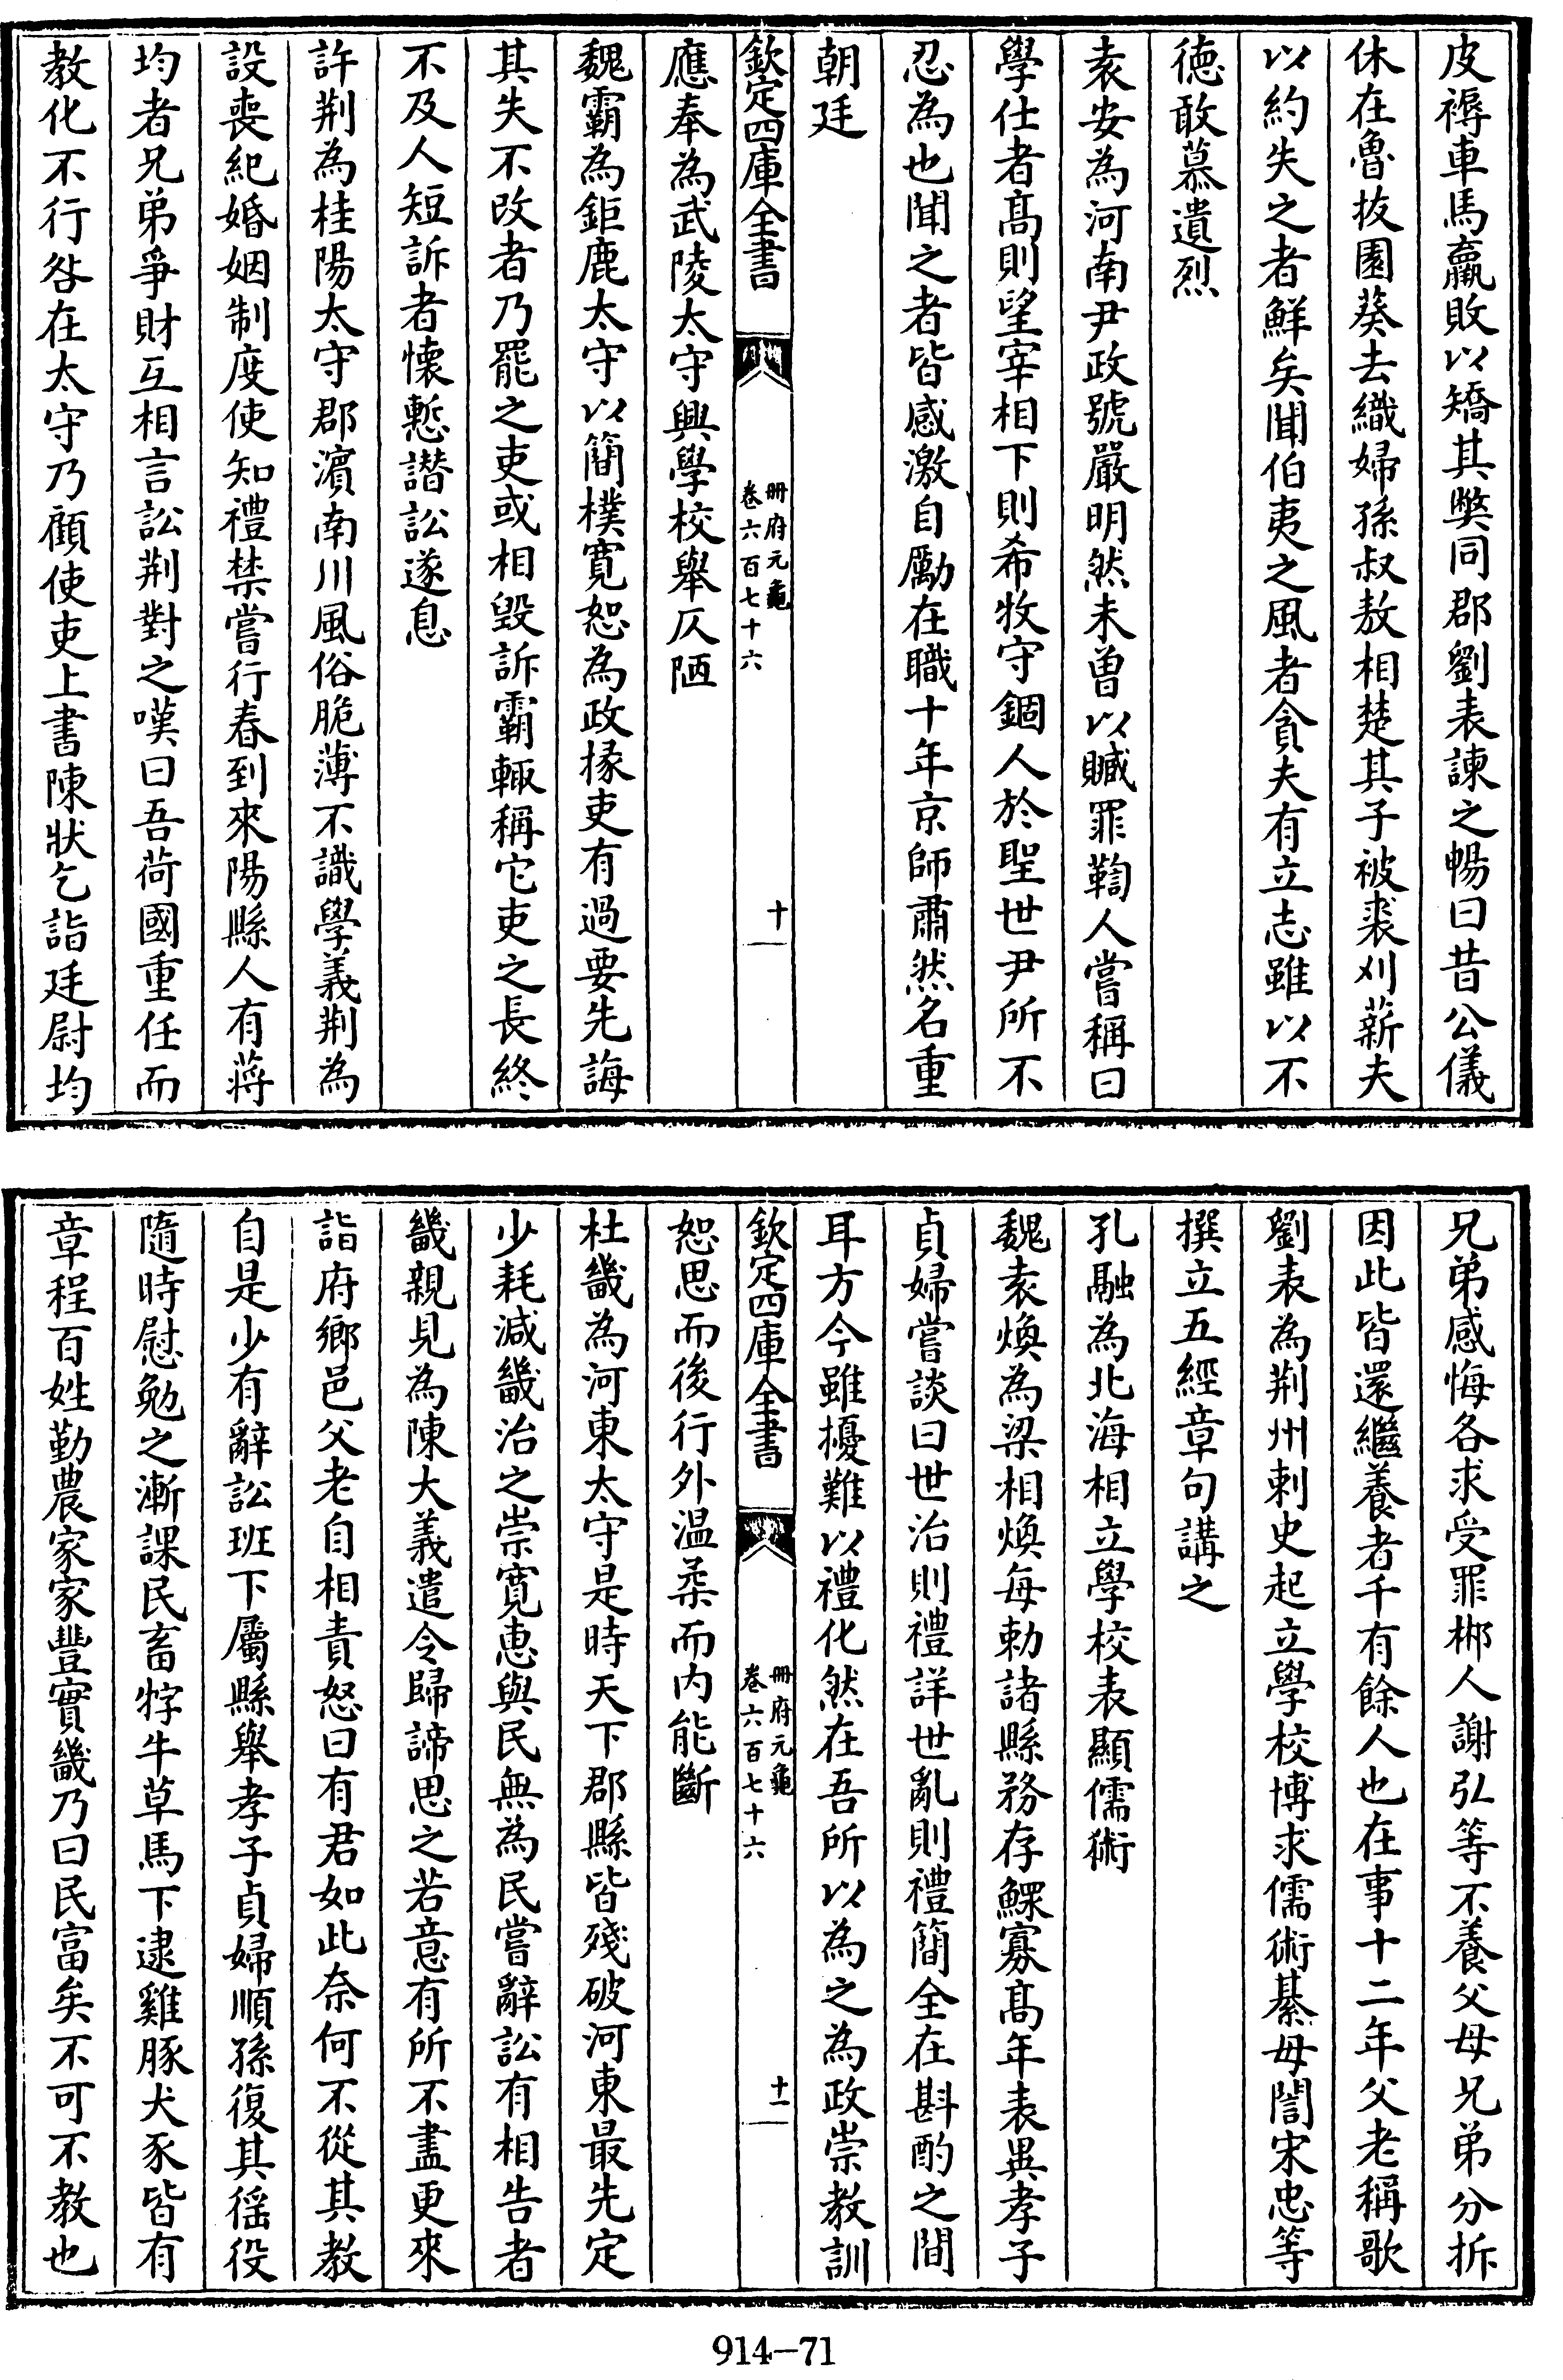 皮褥車馬羸敗以矯其獘同郡劉表諫之暢曰昔公儀
休在魯抜園葵去織婦孫叔敖相楚其子被裘刈薪夫
以約失之者鮮矣聞伯夷之風者貪夫有立志雖以不
徳敢慕遺烈
袁安為河南尹政號嚴明然未曾以贓罪鞫人嘗稱曰
學仕者髙則望宰相下則希牧守錮人於聖世尹所不
忍為也聞之者皆感激自勵在職十年京師肅然名重
朝廷
欽定四庫全書
冊府元龜
卷六百七十六
十
應奉為武陵太守興學校舉仄陋
魏霸為鉅鹿太守以簡樸寛恕為政掾吏有過要先誨
其失不改者乃罷之吏或相毀訴霸輒稱它吏之長終
不及人短訴者懐慙譖訟遂息
許荆為桂陽太守郡濵南川風俗脆薄不識學義荆為
設喪紀婚姻制度使知禮禁嘗行春到來陽縣人有蔣
均者兄弟爭財互相言訟荆對之嘆曰吾荷國重任而
教化不行咎在太守乃顧使吏上書陳狀乞詣廷尉均
兄弟感悔各求受罪郴人謝弘等不養父母兄弟分拆
因此皆還繼養者千有餘人也在事十二年父老稱歌
劉表為荆州刺史起立學校博求儒術綦母闓宋忠等
撰立五經章句講之
孔融為北海相立學校表顯儒術
魏袁煥為梁相煥每勅諸縣務存鰥寡髙年表異孝子
貞婦嘗談曰世治則禮詳世亂則禮簡全在斟酌之間
耳方今雖擾難以禮化然在吾所以為之為政崇教訓
欽定四庫全書
冊府元龜
卷六百七十六
十一
恕思而後行外温柔而内能斷
杜畿為河東太守是時天下郡縣皆殘破河東最先定
少耗減畿治之崇寛惠與民無為民嘗辭訟有相告者
畿親見為陳大義遣令歸諦思之若意有所不盡更來
詣府鄉邑父老自相責怒曰有君如此奈何不從其教
自是少有辭訟班下屬縣舉孝子貞婦順孫復其徭役
隨時慰勉之漸課民畜牸牛草馬下逮雞豚犬豕皆有
章程百姓勤農家家豐實畿乃曰民富矣不可不教也
914-71